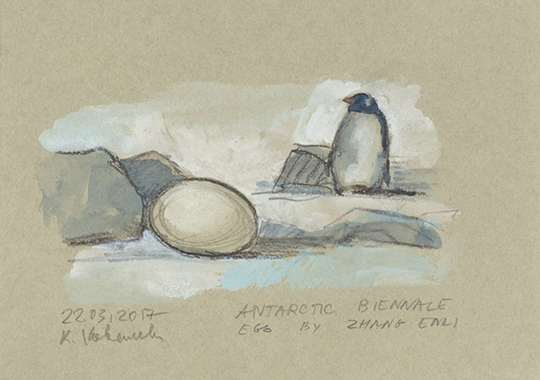 22.03.2017
K.
ANTARCTIC BIENNALE
EGG BY ZHANG ENLI